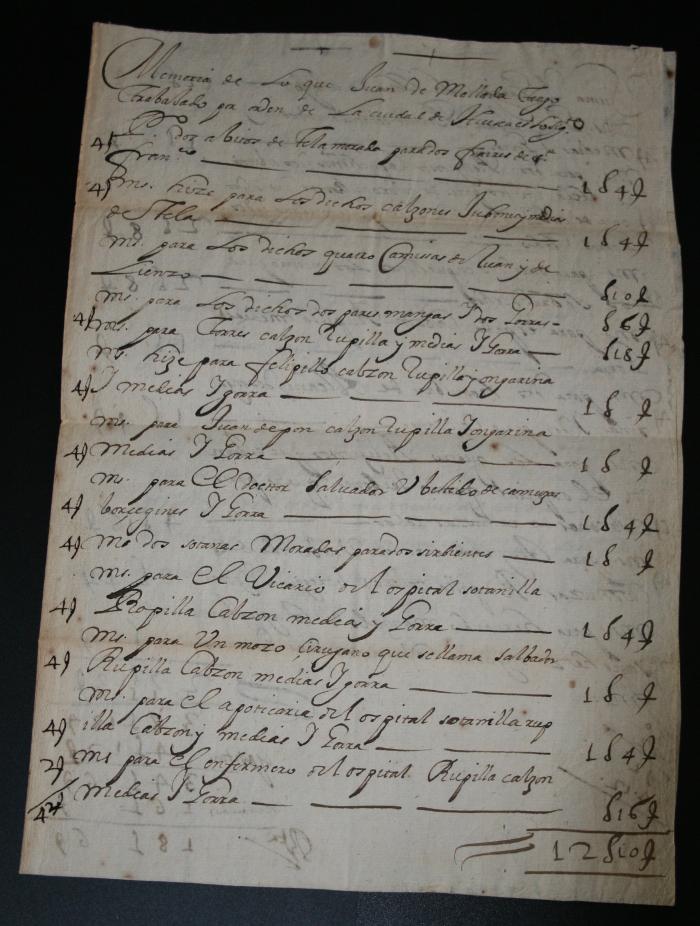 Memoria de Lo que Juan de Mollada tengo
Trabalado por orden de La ciudad de
Po. dos abitos de Tela morada para dos fraires de s.
4) fran.co 1 S 4 J
4) ms. hize para Los dichos calzones Jubones y medias
de Tela 1 S 4 J
ms. para Los dichos quatro Camisas de Ruan y de
Lienzo S 10 J
ms. para Los dichos dos pares mangas J dos Gorras S 6 J
4) ms. para Torres calzon Rupilla y medias J Gorra S 18 J
ms. hize para felipillo calzon Rupilla y ongarina
4) J medias J gorra 1 S J
ms. para Juan de pon calzon Rupilla J ongarina
4) Medias J Gorra 1 S J
ms. para El Doctor Salvador U bestido de camuzas
4) borzegines J Gorra 1 S 4 J
4) ms dos sotanas Moradas para dos sirbientes 1 S J
ms. para El Vicario del ospital sotanilla
4) Ropilla Calzon medias y Gorra 1 S 4 J
ms. para Un mozo Cirujano que se llama Salbador
4) Rupilla Calzon medias J gorra 1 S J
ms. para El apoticario del ospital sotanilla rup
4) illa Calzon y medias J Gorra 1 S 4 J
2) ms para El enfermero del ospital Rupilla calzon
42 Medias J Gorra S 16 J
12 S 10 J